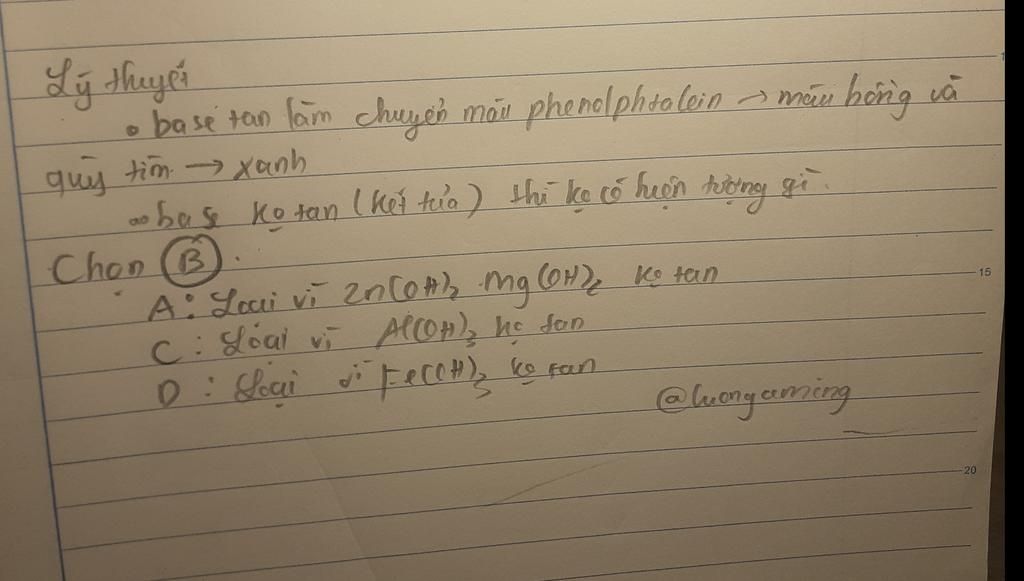 Lý thuyết
• base tan làm chuyển màu phenolphtalein → màu hồng và
quỳ tím → xanh
∞ base ko tan (kết tủa) thì ko có hiện tượng gì.
Chọn B.
A: Loại vì Zn(OH)₂ Mg(OH)₂ ko tan
C: Loại vì Al(OH)₃ ko tan
D: Loại vì Fe(OH)₃ ko tan
@luongaming
15
20